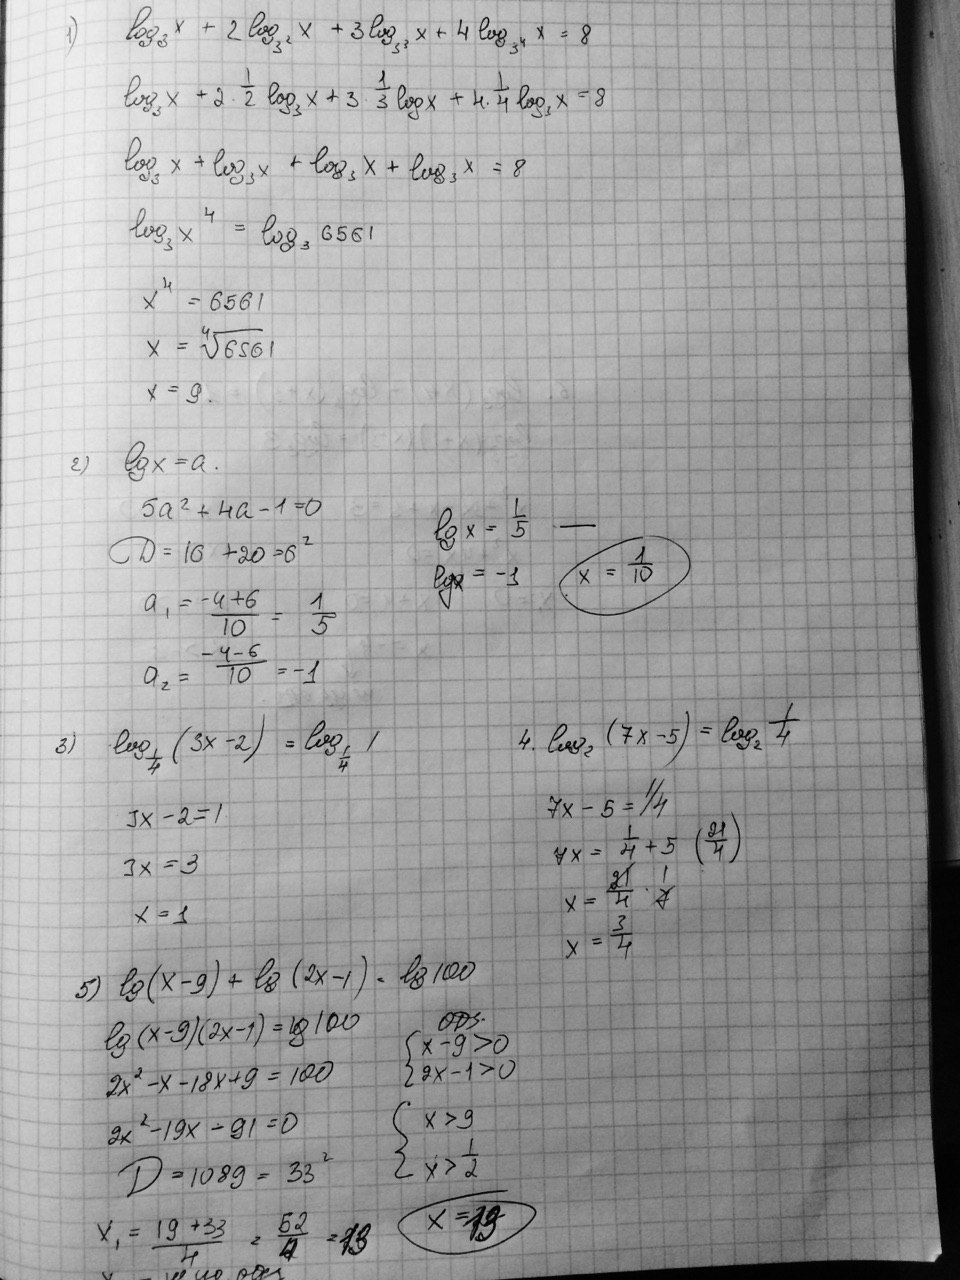 1) log₃x + 2log₃²x + 3log₃³x + 4log₃⁴x = 8
log₃x + 2·1/2 log₃x + 3·1/3 logx + 4·1/4 log₃x = 8
log₃x + log₃x + log₃x + log₃x = 8
log₃x⁴ = log₃ 6561
x⁴ = 6561
x = ⁴√6561
x = 9.
2) lgx = a.
5a² + 4a - 1 = 0
D = 16 + 20 = 6²
a₁ = (-4+6)/10 = 1/5
a₂ = (-4-6)/10 = -1
lg x = 1/5 —
lgx = -1
x = 1/10
3) log_{1/4}(3x-2) = log_{1/4} 1
3x - 2 = 1
3x = 3
x = 1
4. log₂(7x-5) = log₂ 1/4
7x - 5 = 1/4
7x = 1/4 + 5 (21/4)
x = 21/4 · 1/7
x = 3/4
5) lg(x-9) + lg(2x-1) = lg100
lg(x-9)(2x-1) = lg100
2x² - x - 18x + 9 = 100
2x² - 19x - 91 = 0
D = 1089 = 33²
x₁ = (19+33)/4 = 52/4 = 13
{ x-9>0
{ 2x-1>0
{ x>9
{ x>1/2
x = 13